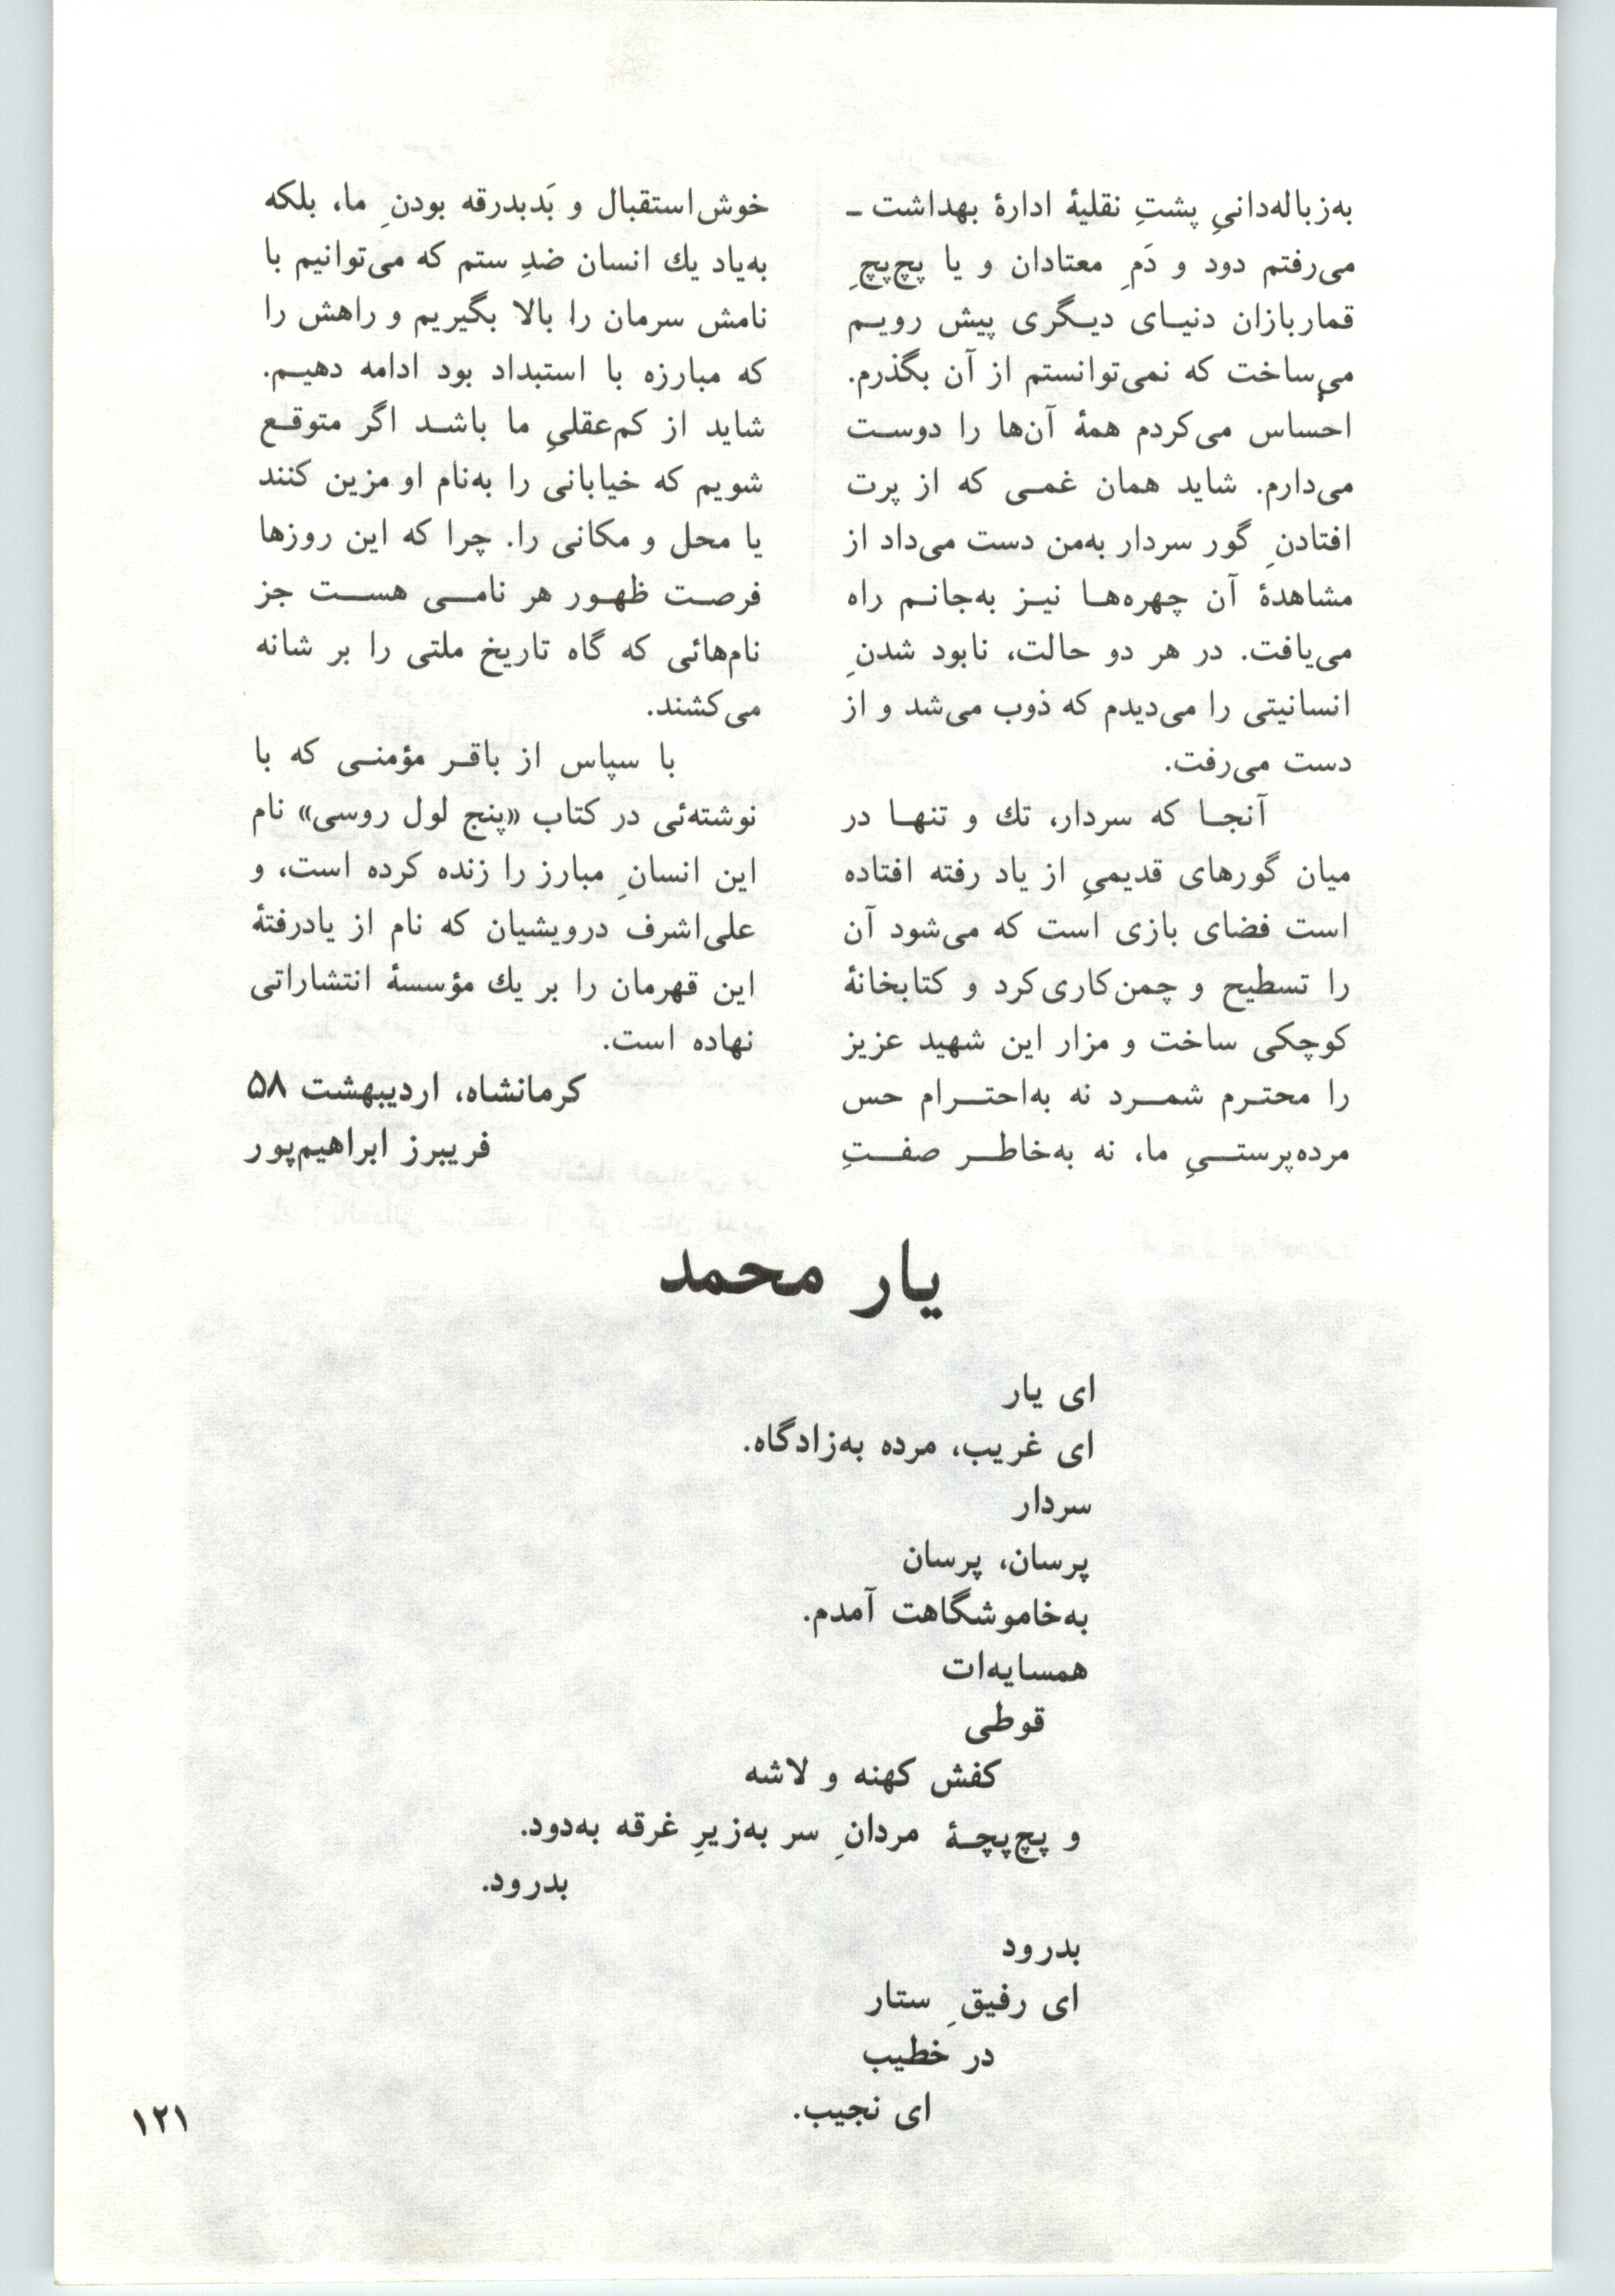 به‌زباله‌دانیِ پشتِ نقلیهٔ ادارهٔ بهداشت ـ
می‌رفتم دود و دَمِ معتادان و یا پچ‌پچِ
قماربازان دنیـای دیـگری پیش رویـم
می‌ساخت که نمی‌توانستم از آن بگذرم.
احساس می‌کردم همهٔ آن‌ها را دوسـت
می‌دارم. شاید همان غمـی که از پرت
افتادنِ گور سردار به‌من دست می‌داد از
مشاهدهٔ آن چهره‌هـا نیـز به‌جانـم راه
می‌یافت. در هر دو حالت، نابود شدنِ
انسانیتی را می‌دیدم که ذوب می‌شد و از
دست می‌رفت.
آنجـا که سردار، تك و تنهـا در
میان گورهای قدیمیِ از یاد رفته افتاده
است فضای بازی است که می‌شود آن
را تسطیح و چمن‌کاری‌کرد و کتابخانهٔ
کوچکی ساخت و مزار این شهید عزیز
را محتـرم شمـــرد نه به‌احتـــرام حس
مرده‌پرستـــیِ ما، نه به‌خاطـــر صفـــتِ
خوش‌استقبال و بَدبدرقه بودنِ ما، بلکه
به‌یاد یك انسان ضدِ ستم که می‌توانیم با
نامش سرمان را بالا بگیریم و راهش را
که مبارزه با استبداد بود ادامه دهیـم.
شاید از کم‌عقلیِ ما باشـد اگر متوقـع
شویم که خیابانی را به‌نام او مزین کنند
یا محل و مکانی را. چرا که این روزها
فرصـت ظهـور هر نامـــی هســـت جز
نام‌هائی که گاه تاریخ ملتی را بر شانه
می‌کشند.
با سپاس از باقـر مؤمنـی که با
نوشته‌ئی در کتاب «پنج لول روسی» نام
این انسانِ مبارز را زنده کرده است، و
علی‌اشرف درویشیان که نام از یادرفتهٔ
این قهرمان را بر یك مؤسسهٔ انتشاراتی
نهاده است.
کرمانشاه، اردیبهشت ۵۸
فریبرز ابراهیم‌پور
یار محمد
ای یار
ای غریب، مرده به‌زادگاه.
سردار
پرسان، پرسان
به‌خاموشگاهت آمدم.
همسایه‌ات
قوطی
کفش کهنه و لاشه
و پچ‌پچـهٔ مردانِ سر به‌زیرِ غرقه به‌دود.
بدرود.
بدرود
ای رفیقِ ستار
در خطیب
ای نجیب.
۱۲۱